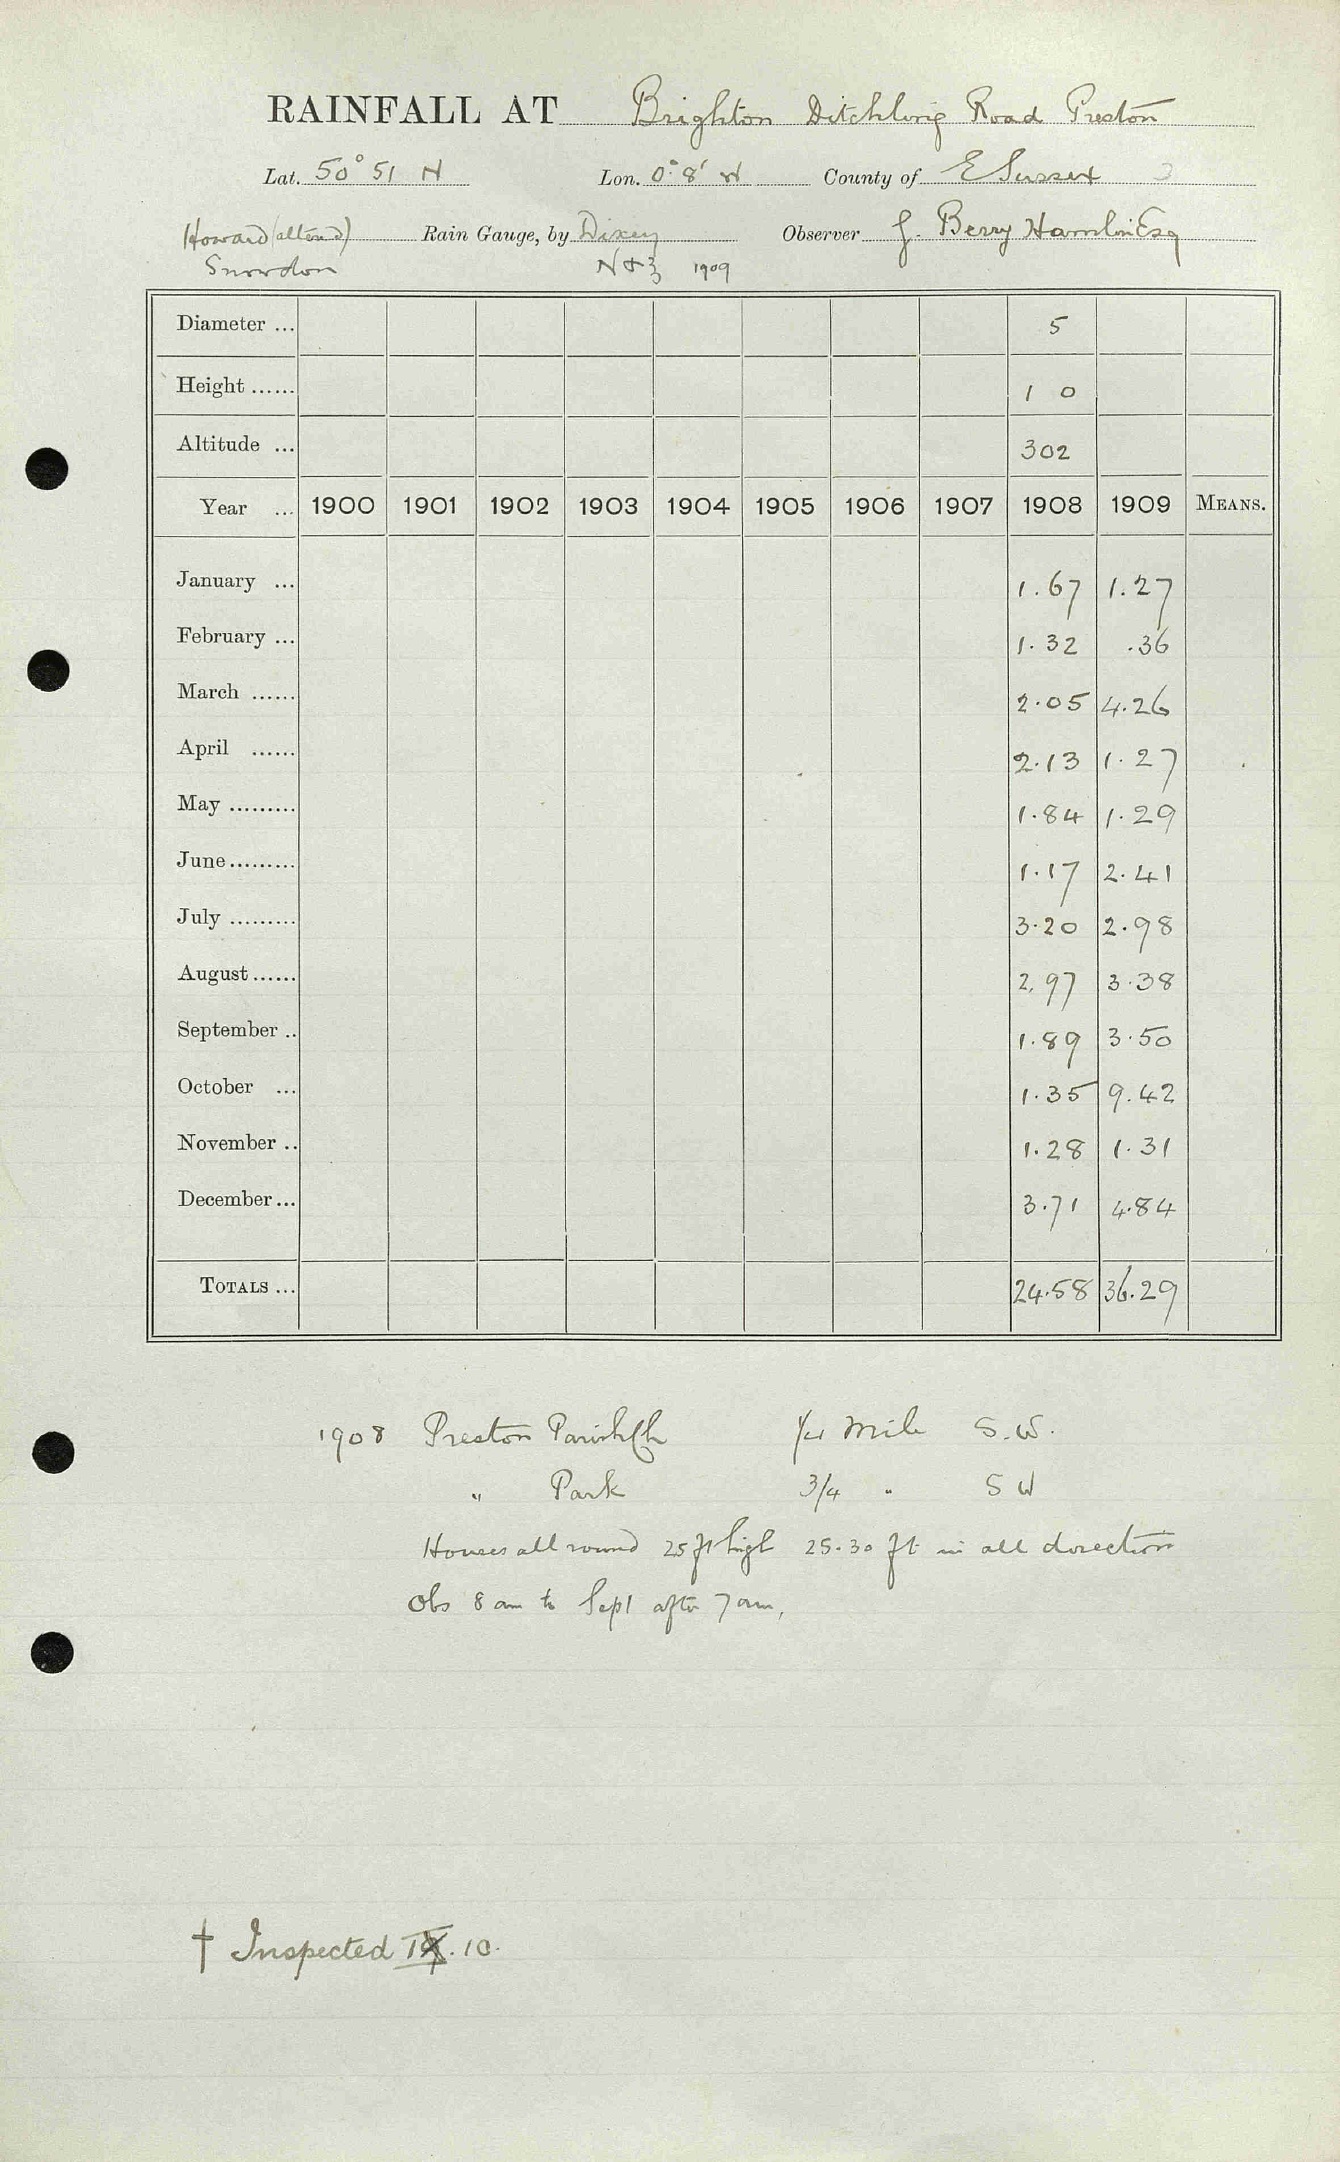 RAINFALL AT Brighton Ditchling Road Preston
Lat. 50° 51 N Lon. 0° 8' W County of E Sussex 3
Howard (altered) Rain Gauge, by Dixey Observer J. Berry Hamlin Esq
Snowdon 1909
Diameter ... 5
Height ...... 1 0
Altitude ... 302
Year ... 1900 1901 1902 1903 1904 1905 1906 1907 1908 1909 MEANS.
January ... 1.67 1.27
February ... 1.32 .36
March ...... 2.05 4.26
April ...... 2.13 1.27
May ......... 1.84 1.29
June ......... 1.17 2.41
July ......... 3.20 2.98
August ...... 2.97 3.38
September .. 1.89 3.50
October ... 1.35 9.42
November .. 1.28 1.31
December ... 3.71 4.84
TOTALS ... 24.58 36.29
1908 Preston Parish Ch 1/4 Mile S.W.
" Park 3/4 " S W
Houses all round 25 ft high 25.30 ft in all direction
Obs 8 am to Sept after 7 am,
† Inspected .10.